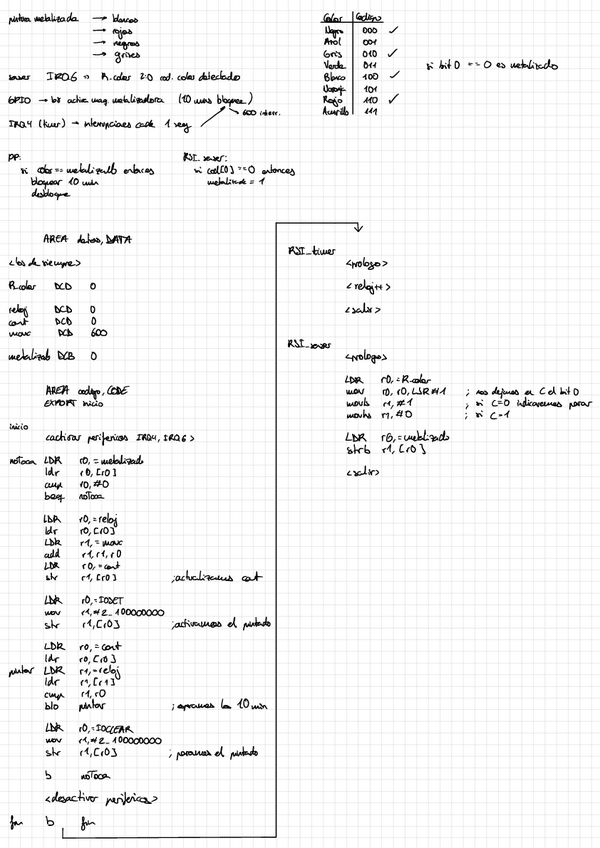 pintura metalizada → blancos
→ rojos
→ negros
→ grises
sensor IRQ6 => R_color 2:0 cod. color detectado
GPIO → bit activa maq. metalizadora (10 mins bloquea)
600 interr.
IRQ4 (timer) → interrupciones cada 1 seg
Color Codigo
Negro 000 ✓
Azul 001
Gris 010 ✓
Verde 011
Blanco 100 ✓
Naranja 101
Rojo 110 ✓
Amarillo 111
si bit 0 == 0 es metalizado
PP:
si color == metalizado entonces
bloquear 10 min
desbloquea
RSI_sensor:
si cod[0] == 0 entonces
metalizado = 1
AREA datos, DATA
<los de siempre>
R_color DCD 0
reloj DCD 0
cont DCD 0
max DCD 600
metalizado DCB 0
AREA codigo, CODE
EXPORT inicio
inicio
<activar perifericos IRQ4, IRQ6>
noToca LDR r0, =metalizado
ldr r0, [r0]
cmp r0, #0
beq noToca
LDR r0, =reloj
ldr r0, [r0]
LDR r1, =max
add r1, r1, r0
LDR r0, =cont
str r1, [r0] ;actualizamos cont
LDR r0, =IOSET
mov r1, #2_100000000
str r1, [r0] ;activamos el pintado
LDR r0, =cont
ldr r0, [r0]
pintar LDR r1, =reloj
ldr r1, [r1]
cmp r1, r0
blo pintar ; esperamos los 10 min
LDR r0, =IOCLEAR
mov r1, #2_100000000
str r1, [r0] ; paramos el pintado
b noToca
<desactivar perifericos>
fin b fin
RSI_timer
<prologo>
<reloj++>
<salir>
RSI_sensor
<prologo>
LDR r0, =R_color
mov r0, r0, LSR #1 ; nos dejamos en C el bit 0
movlo r1, #1 ; si C=0 indicaremos parar
movhs r1, #0 ; si C=1
LDR r0, =metalizado
strb r1, [r0]
<salir>